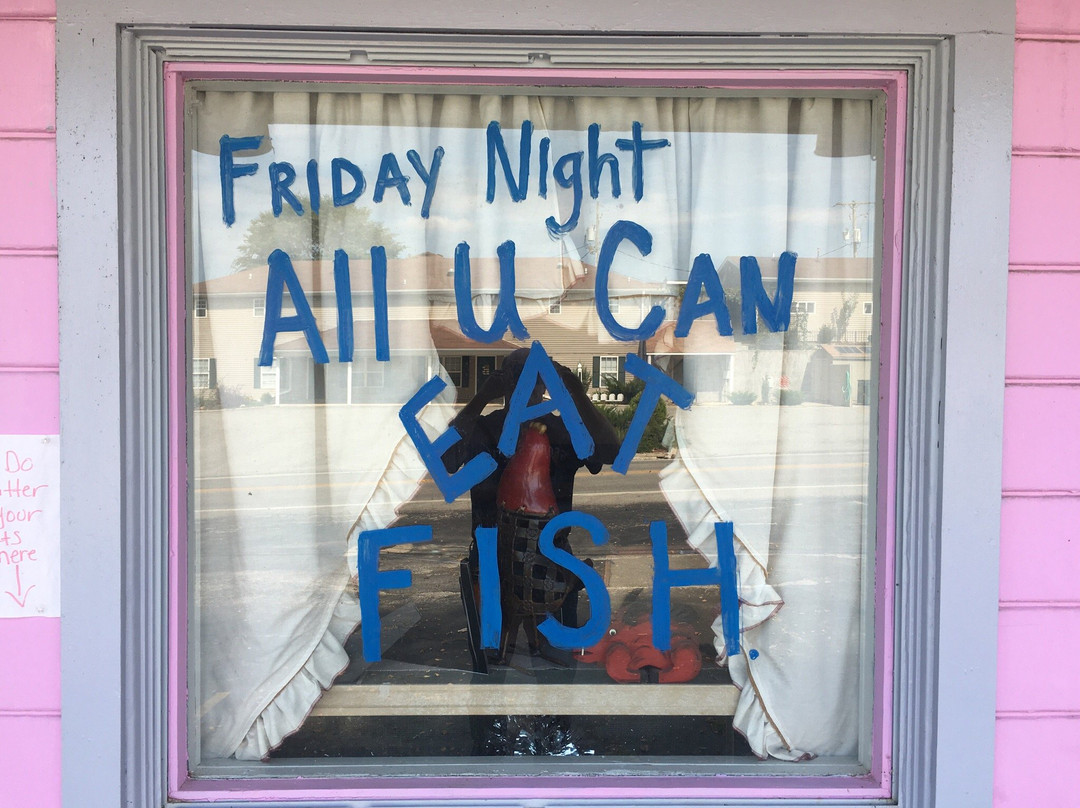 FRiDAY Night
All U CAN
EAT
FISH.
Do
your
here